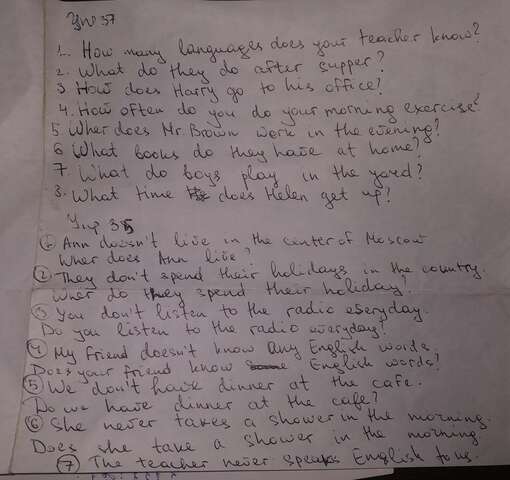 Упр 37
1. How many languages does your teacher know?
2. What do they do after supper?
3 How does Harry go to his office?
4. How often do you do your morning exercise?
5 Wher does Mr. Brown work in the evening?
6 What books do they have at home?
7. What do boys play in the yard?
8. What time does Helen get up?
Упр 35
1 Ann doesn't live in the center of Moscow
Wher does Ann live?
2 They don't spend their holidays in the country.
Wher do they spend their holiday?
3 You don't listen to the radio everyday.
Do you listen to the radio everyday?
4 My friend doesn't know any English words.
Does your friend know English words?
5 We don't have dinner at the cafe.
Do we have dinner at the cafe?
6 She never takes a shower in the morning.
Does she take a shower in the morning
7 The teacher never speaks English to us.